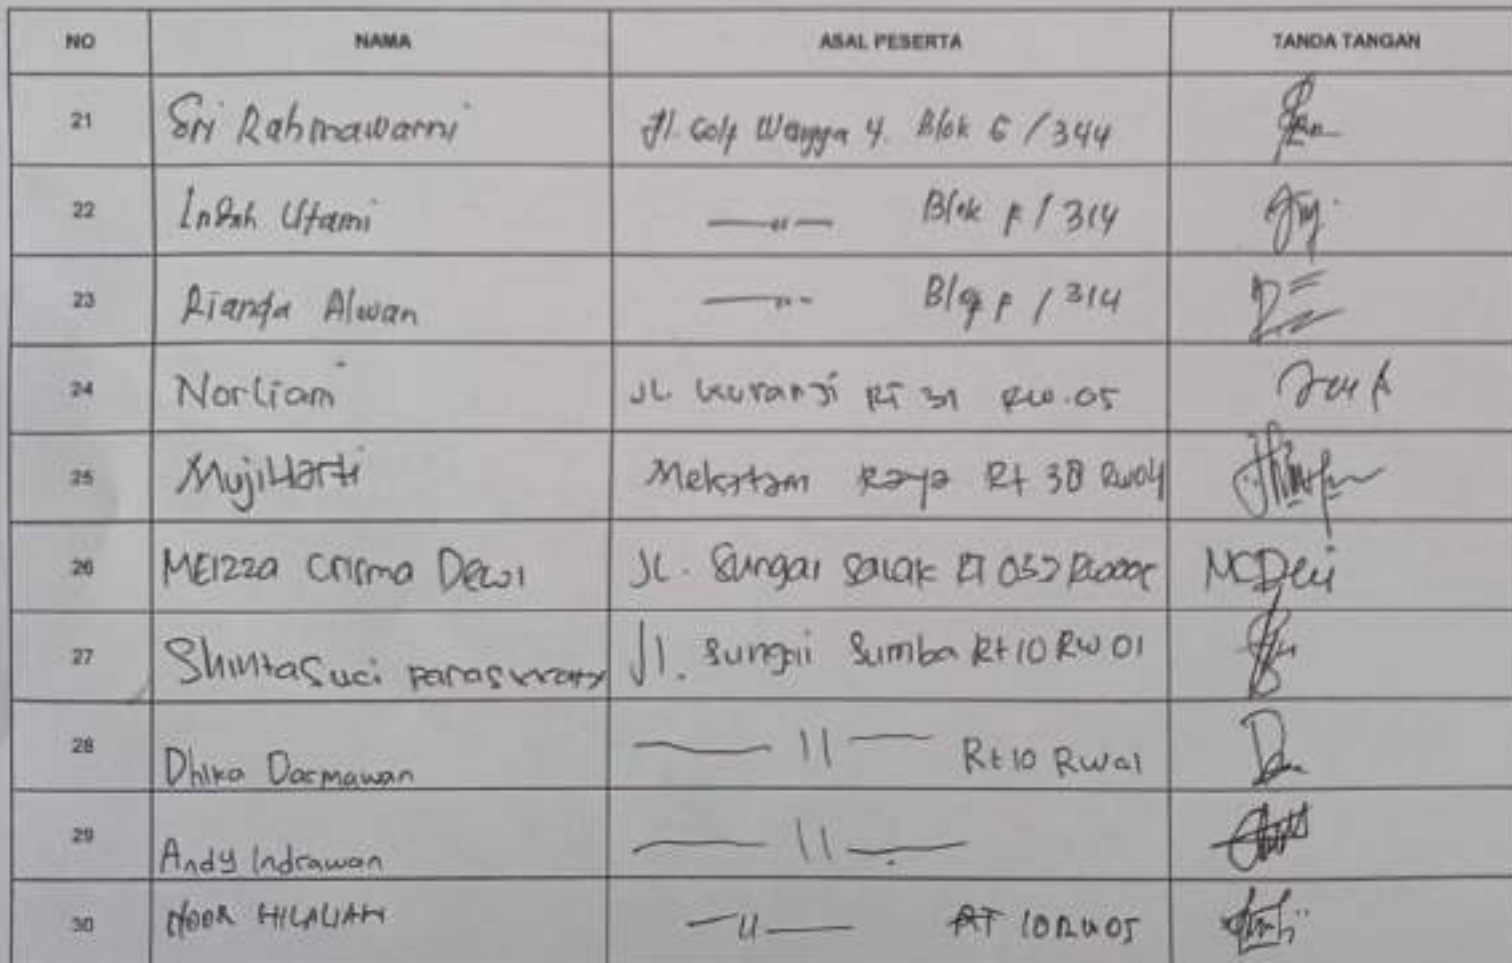 NO NAMA ASAL PESERTA TANDA TANGAN
21 Sri Rahmawarni Jl. Golf Wangga 4. Blok G / 344
22 Indah Utami —"— Blok F / 314
23 Rianda Alwan —"- Blok F / 314
24 Norliani JL. Kuranji RT 31 RW.05
25 MujiHarti Mekatam Raya Rt 38 Rw04
26 MEIZZA Crisma Dewi JL. Sungai Salak RT 052 MCDewi
27 Shinta Suci Jl. Sungai Sumba Rt 10 RW 01
28 Dhika Darmawan — 11 — Rt 10 Rw 01
29 Andy Indrawan — 11 —
30 NOOR HILALIAH —"— RT 10 RW 05